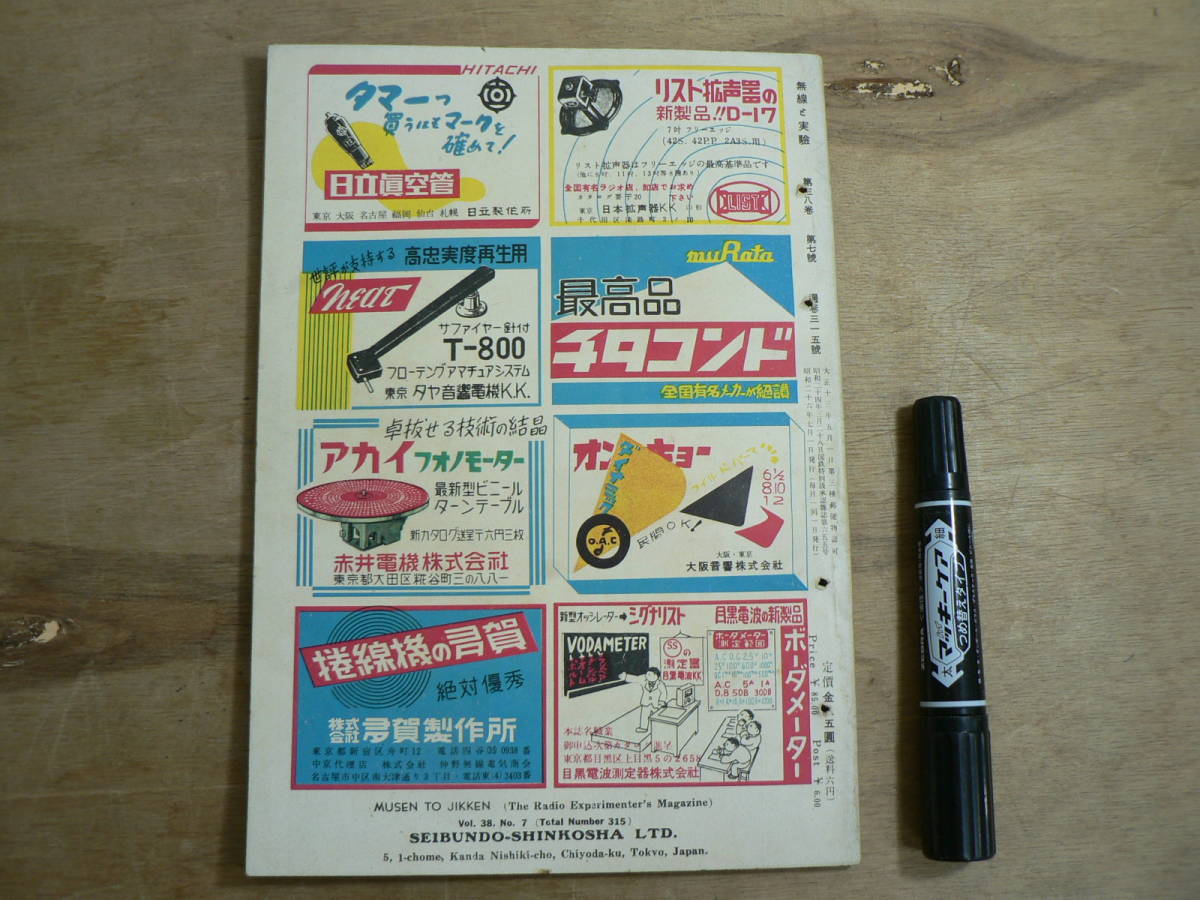 HITACHI
タマ一つ
買うにもマークを
確めて!
日立眞空管
東京 大阪 名古屋 福岡 仙台 札幌 日立製作所
リスト拡声器の
新製品!!D-17
7吋 フリーエッジ
(42S. 42P.P. 2A3S.用)
リスト拡声器はフリーエッジの最高基準品です
全国有名ラジオ店、卸店でお求め
下さい
東京 日本拡声器K.K.
LIST
世評が支持する 高忠実度再生用
NEAT
サファイヤー針付
T-800
フローテングアマチュアシステム
東京 タヤ音響電機K.K.
muRata
最高品
チタコンド
全国有名メーカーが絶讃
卓抜せる技術の結晶
アカイ フォノモーター
最新型ビニール
ターンテーブル
新カタログ送呈十六円三枚
赤井電機株式会社
東京都大田区糀谷町三の八八一
オンキョー
ダイナミック
フィルドパーマ
6½
8 10
12
O.A.C
民間OK!
大阪・東京
大阪音響株式会社
捲線機の多賀
絶対優秀
株式会社 多賀製作所
東京都新宿区舟町12 電話四谷(35)0938番
中京代理店 株式会社 仲野無線電気商会
名古屋市中区南大津通り3丁目・電話東(4)3403番
新型オッシレーター➡シグナリスト 目黒電波の新製品
VODAMETER
SSの
測定器
目黒電波KK
ボーダメーター
測定範囲
A.C 5A 1A
D.B 50B 300B
ボーダメーター
本誌名記業
御申込次第カタログ進呈
東京都目黒区上目黒5の2658
目黒電波測定器株式会社
MUSEN TO JIKKEN (The Radio Experimenter's Magazine)
Vol. 38. No. 7 (Total Number 315)
SEIBUNDO-SHINKOSHA LTD.
5, 1-chome, Kanda Nishiki-cho, Chiyoda-ku, Tokyo, Japan.
無線と実験 第三八巻 第七號 通巻三一五號
大正十三年五月一日第三種郵便物認可
昭和二十六年七月一日発行(毎月一回一日発行)
定價金 五圓 (送料六円)
Price ¥ 85.00 Post ¥ 6.00
マッキーケア
つめ替えタイプ
細
太